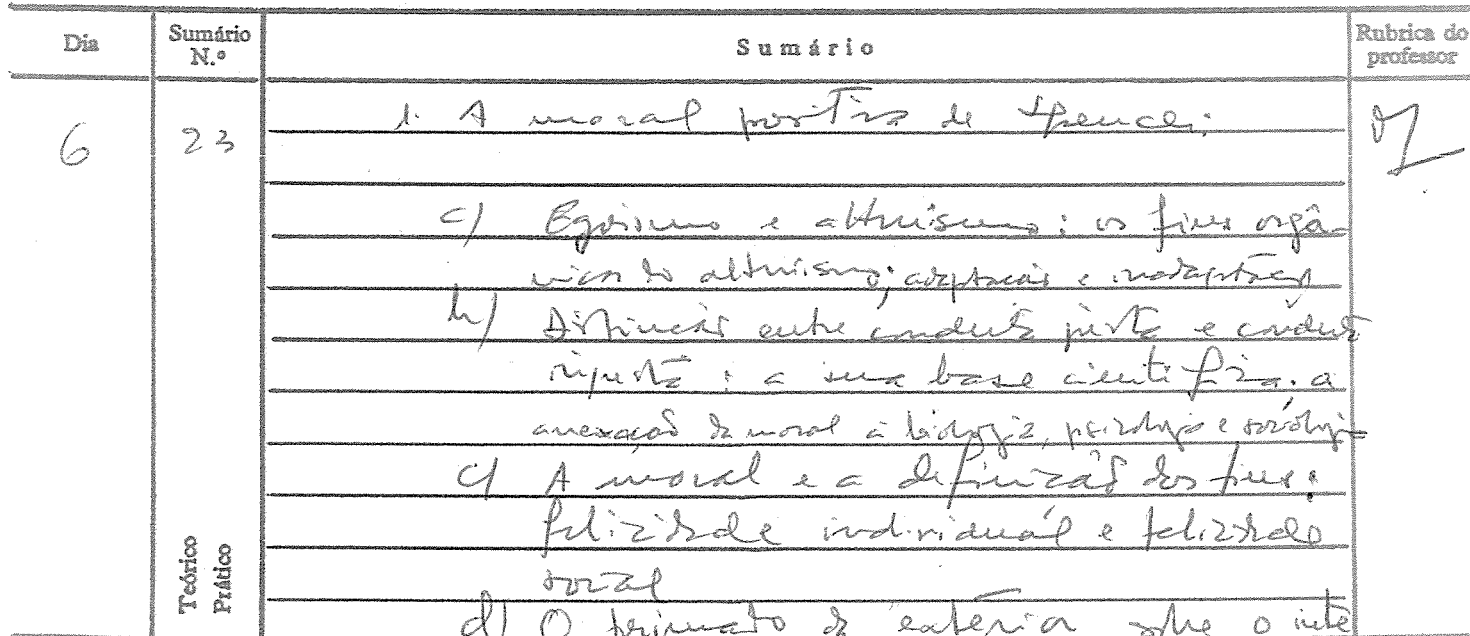 Dia
Sumário N.º
Sumário
Rubrica do professor
6
23
1. A moral positiva de Spencer:
a) Egoismo e altruismo: os fins orgâ-
nicos do altruismo; adaptação e inadaptação
b) Distinção entre conduta justa e conduta
injusta: a sua base cientifica. a
anexação da moral à biologia, psicologia e sociologia
c) A moral e a definição dos fins:
felicidade individual e felicidade
social
d) O primado do exterior sobre o inte
Teórico
Prático